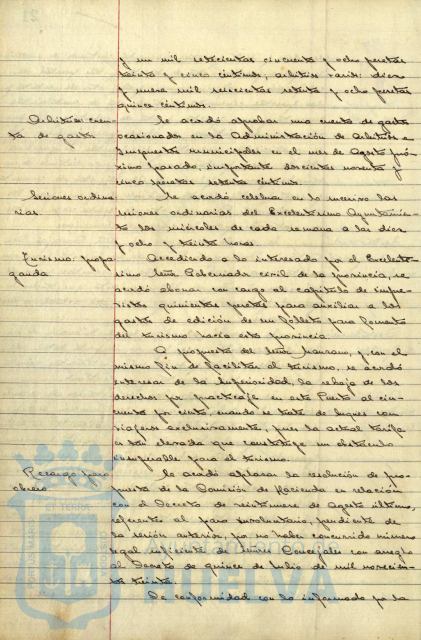 y un mil setecientas cincuenta y ocho pesetas
treinta y cinco céntimos; arbitrios varios: diez
y nueve mil seiscientas setenta y ocho pesetas
quince céntimos.
Arbitrios: cuen-
ta de gastos
Se acordó aprobar una cuenta de gastos
ocasionados en la Administración de Arbitrios e
Impuestos municipales en el mes de Agosto pró-
ximo pasado, importante doscientas noventa y
cinco pesetas setenta céntimos.
Sesiones ordina-
rias
Se acordó celebrar en lo sucesivo las
sesiones ordinarias del Excelentísimo Ayuntamien-
to los miércoles de cada semana a las diez
y ocho y treinta horas.
Turismo: propa-
ganda
Accediendo a lo interesado por el Excelen-
tísimo Señor Gobernador civil de la provincia, se
acordó abonar con cargo al capítulo de impre-
vistos quinientas pesetas para auxiliar a los
gastos de edición de un folleto para fomento
del turismo hacia esta provincia.
A propuesta del Señor Manzano, y con el
mismo fin de facilitar el turismo, se acordó
interesar de la Superioridad, la rebaja de los
derechos por practicaje en este Puerto al cin-
cuenta por ciento, cuando se trate de buques con
viajeros exclusivamente, pues la actual tarifa
es tan elevada que constituye un obstáculo
insuperable para el turismo.
Recargo paro
obrero
Se acordó aplazar la resolución de pro-
puesta de la Comisión de Hacienda en relación
con el Decreto de veintinueve de Agosto último,
referentes al paro involuntario, pendiente de
la sesión anterior, por no haber concurrido número
legal suficiente de Señores Concejales con arreglo
al Decreto de quince de Julio de mil novecien-
tos treinta.
De conformidad con lo informado por la
HUELVA